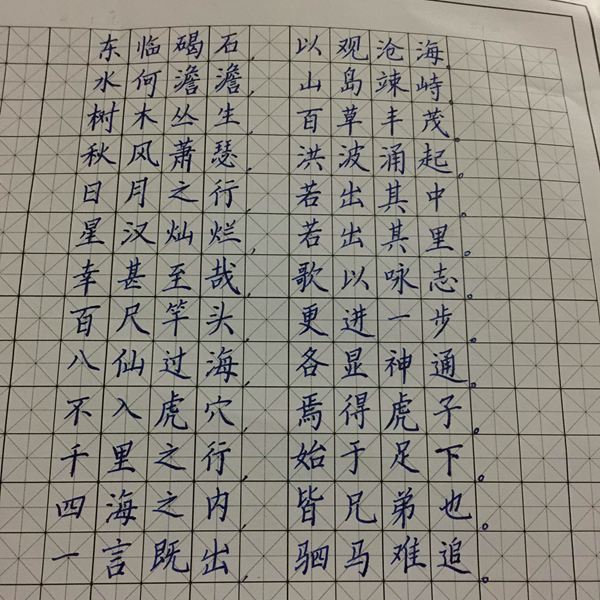 东临碣石,以观沧海。
水何澹澹,山岛竦峙。
树木丛生,百草丰茂。
秋风萧瑟,洪波涌起。
日月之行,若出其中。
星汉灿烂,若出其里。
幸甚至哉,歌以咏志。
百尺竿头,更进一步。
八仙过海,各显神通。
不入虎穴,焉得虎子。
千里之行,始于足下。
四海之内,皆兄弟也。
一言既出,驷马难追。